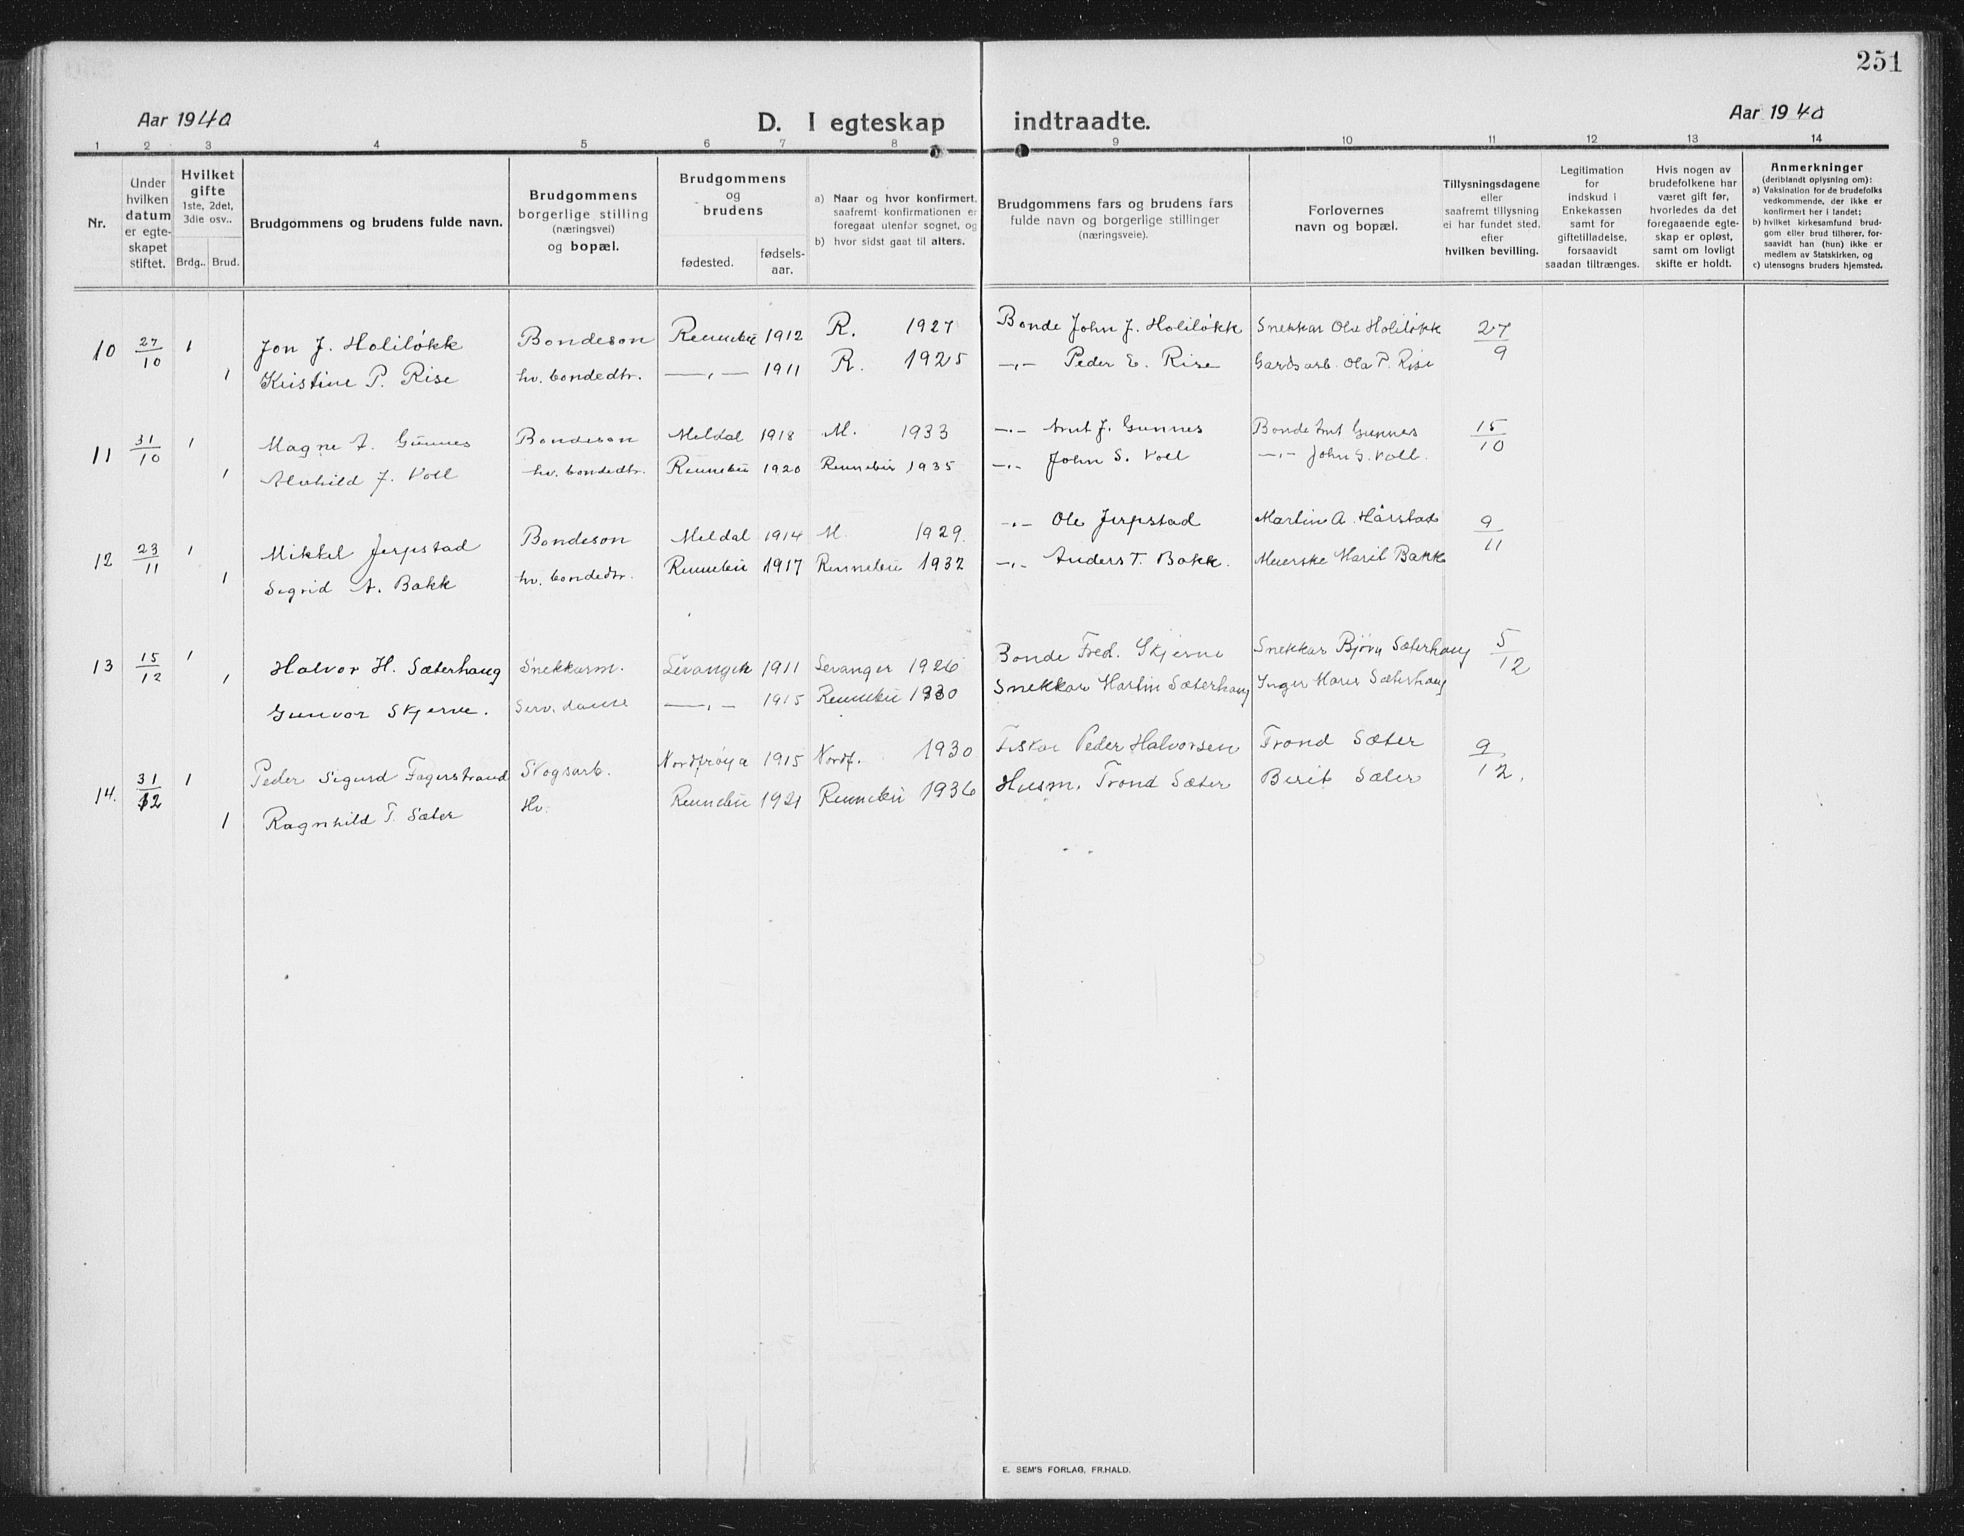 251
Aar 1940 D. I egteskap indtraadte. Aar 1940
1 2 3 4 5 6 7 8 9 10 11 12 13 14
Nr.
Under hvilken datum er egteskapet stiftet.
Hvilket gifte 1ste, 2det, 3die osv..
Brdg.. Brud.
Brudgommens og brudens fulde navn.
Brudgommens borgerlige stilling (næringsvei) og bopæl.
Brudgommens og brudens
fødested. fødselsaar.
a) Naar og hvor konfirmert, saafremt konfirmationen er foregaat utenfor sognet, og
b) hvor sidst gaat til alters.
Brudgommens fars og brudens fars fulde navn og borgerlige stillinger (næringsveie).
Forlovernes navn og bopæl.
Tillysningsdagene eller saafremt tillysning ei har fundet sted. efter hvilken bevilling.
Legitimation for indskud i Enkekassen samt for giftetilladelse, forsaavidt saadan tiltrænges.
Hvis nogen av brudefolkene har været gift før, hvorledes da det foregaaende egteskap er opløst, samt om lovligt skifte er holdt.
Anmerkninger (deriblandt oplysning om):
a) Vaksination for de brudefolks vedkommende, der ikke er konfirmert her i landet;
b) hvilket kirkesamfund brudgom eller brud tilhører, forsaavidt han (hun) ikke er medlem av Statskirken, og
c) utensogns bruders hjemsted.
10 27/10 1 Jon J. Holiløkk Bondeson Rennebu 1912 R. 1927 Bonde John J. Holiløkk Snekkar Ola Holiløkk 27/9
1 Kristine P. Rise hv. bondedtr. —„— 1911 R. 1925 -„- Peder E. Rise Gardsarb. Ola P. Rise
11 31/10 1 Magne A. Gunnes Bondeson Meldal 1918 M. 1933 -„- Arnt J. Gunnes Bonde Arnt Gunnes 15/10
1 Alvhild J. Voll hv. bondedtr. Rennebu 1920 Rennebu 1935 -„- John S. Voll -„- John S. Voll.
12 23/11 1 Mikkel Jerpstad Bondeson Meldal 1914 M. 1929. -„- Ole Jerpstad Martin A. Hårstad 9/11
1 Sigrid A. Bakk hv. bondedtr. Rennebu 1917 Rennebu 1932 -„- Anders T. Bakk. Meierske Marit Bakk
13 15/12 1 Halvor H. Sæterhaug Snekkarm. Levanger 1911 Levanger 1926 Bonde Fred. Skjerve Snekkar Bjørn Sæterhaug 5/12
1 Gunvor Skjerve. Serv. dame —„— 1915 Rennebu 1930 Snekkar Martin Sæterhaug Inger Marie Sæterhaug
14. 31/12 1 Peder Sigurd Fagerstrand Skogsarb. Nordfrøya 1915 Nordf. 1930 Fiskar Peder Halvorsen Trond Sæter 9/12.
1 Ragnhild T. Sæter Hv. Rennebu 1921 Rennebu 1936 Husm. Trond Sæter Berit Sæter
E. SEM'S FORLAG, FR.HALD.